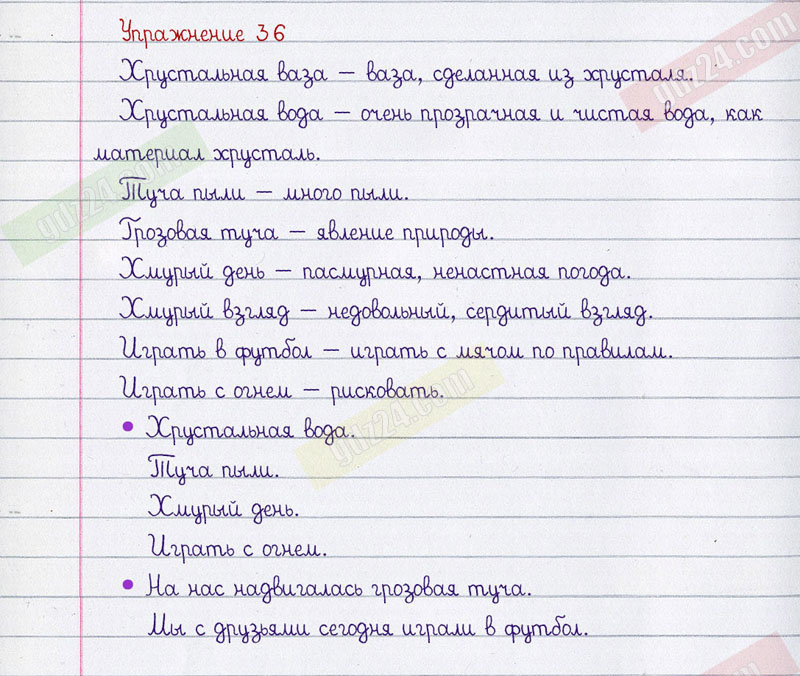 Упражнение 36
Хрустальная ваза — ваза, сделанная из хрусталя.
Хрустальная вода — очень прозрачная и чистая вода, как
материал хрусталь.
Туча пыли — много пыли.
Грозовая туча — явление природы.
Хмурый день — пасмурная, ненастная погода.
Хмурый взгляд — недовольный, сердитый взгляд.
Играть в футбол — играть с мячом по правилам.
Играть с огнем — рисковать.
• Хрустальная вода.
Туча пыли.
Хмурый день.
Играть с огнем.
• На нас надвигалась грозовая туча.
Мы с друзьями сегодня играли в футбол.
gdz24.com
gdz24.com
gdz24.com